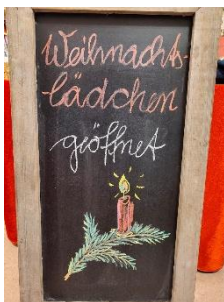 Weihnachts-
lädchen
geöffnet